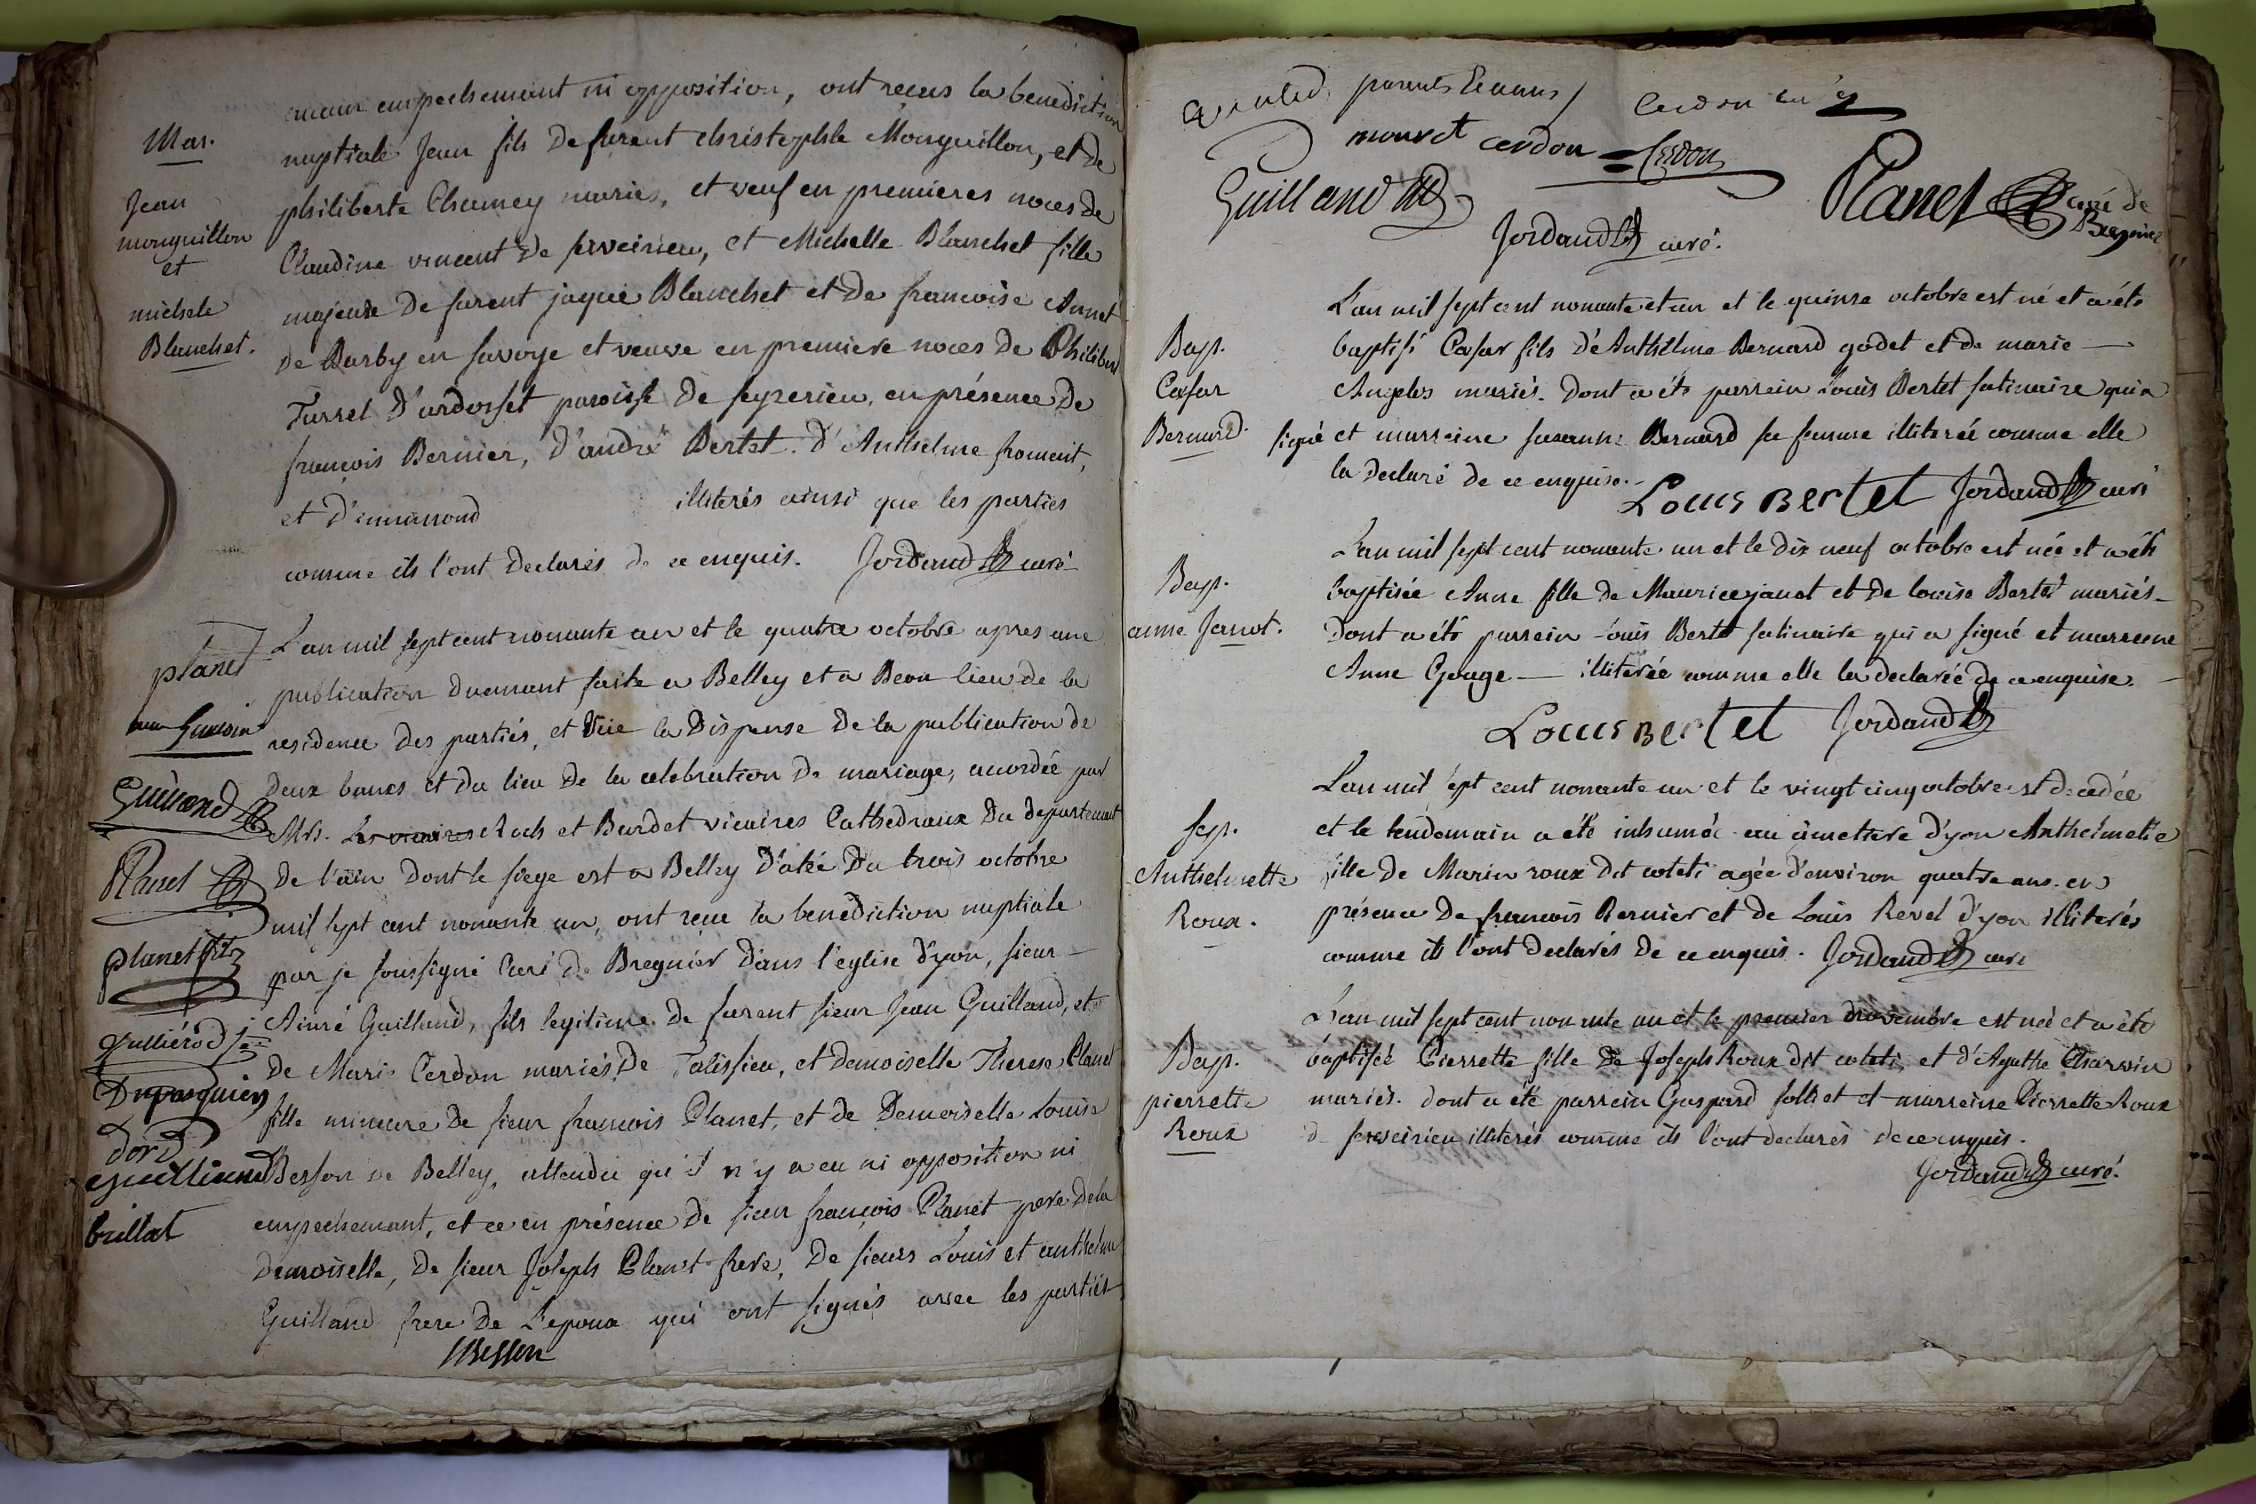 aucun empechement ni opposition, ont recus la benediction
Mar.
nuptiale Jean fils de furent christophle Monguillon, et de
Jean
monguillon
et
michele
Blanchet.
philiberte Chamey mariés, et veuf en premieres noces de
Claudine vincent de serveirieu, et Michelle Blanchet fille
majeure de furent jaque Blanchet et de francoise Annet
de Barby en savoye et veuve en premiere noces de Philibert
Turrel d'ardosset paroisse de seyzerieu, en présence de
françois Bernier, d'andré Bertet. d'Anthelme froment,
et d'ennemond illiterés ainsi que les parties
comme ils l'ont declarés de ce enquis. Jordand curé
planet
L'an mil sept cent nonante un et le quatre octobre apres une
publication duemant faite a Belley et a Beon lieu de la
residence des partiés, et vue la dispense de la publication de
deux bancs et du lieu de la celebration de mariage, accordée par
Guilland
Mrs. Les vicaires Rock et Burdet vicaires Cathedraux du departement
Planet
de l'ain dont le siege est a Belley d'atée du trois octobre
mil sept cent nonante un, ont recue la benediction nuptiale
planet fils
par je soussigné Curé de Bregnier dans l'eglise d'yon, sieur
Aimé Guilland, fils legitime de furent sieur Jean Guilland, et
de Marie Cerdon mariés de Talissieu, et demoiselle Therese Planet
Dupasquier
fille mineure de sieur francois Planet, et de Demoiselle Louise
dord
guilliand
Besson de Belley, attendu qu'il n'y a eu ni opposition ni
brillat
empechemant, et ce en présence de sieur françois Planet pere de la
demoiselle, de sieur Joseph Planet frere, de sieurs Louis et anthelme
Guilland frere de L'epoux qui ont signés avec les partiés
Besson
parents
Cerdon
mouret cerdon Cerdon
Guilland
Planet curé de
Bregnier
Jordand curé.
L'an mil sept cent nonante et un et le quinse octobre est né et a été
Bap.
Cæsar
Bernard.
baptisé Cæsar fils d'Anthelme Bernard godet et de marie
Angelos mariés. Dont a été parrein Louis Bertet salinaire qui a
signé et marreine susanne Bernard sa femme illiterée comme elle
la declaré de ce enquise.
Louis Bertet Jordand curé
L'an mil sept cent nonante un et le dix neuf octobre est née et a été
Bap.
anne Janot.
baptisée Anne fille de Maurice janot et de louise Bertet mariés
Dont a été parrein Louis Bertet salinaire qui a signé et marreine
Anne Gouge illiterée comme elle la declarée de ce enquise.
Louis Bertet Jordand
L'an mil sept cent nonante un et le vingt cinq octobre est decedée
Sep.
Anthelmette
Roux.
et le lendemain a été inhumée au cimetiere d'yon Anthelmette
fille de Marin roux dit coteti agée d'environ quatre ans. en
présence de francois Bernier et de Louis Revel d'yon illiterés
comme ils l'ont declarés de ce enquis. Jordand curé
L'an mil sept cent nonante un et le premier novembre est née et a été
Bap.
pierrette
Roux
baptisée Pierrette fille de Joseph Roux dit coteti, et d'Agathe Charvin
mariés. dont a été parrein Gaspard folliet et marreine Pierrette Roux
de serveirieu illiterés comme ils l'ont declarés de ce enquis.
Jordand curé.